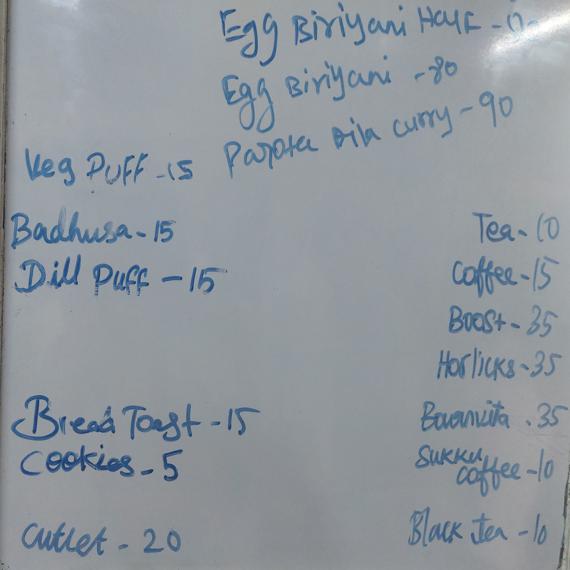 Egg Biriyani Half -
Egg Biriyani -80
Parota curry - 90
Veg Puff - 15
Badhusa - 15
Dill Puff - 15
Bread Toast - 15
Cookies - 5
Cutlet - 20
Tea - 10
Coffee - 15
Boost - 35
Horlicks - 35
35
Sukku
coffee - 10
Black tea - 10